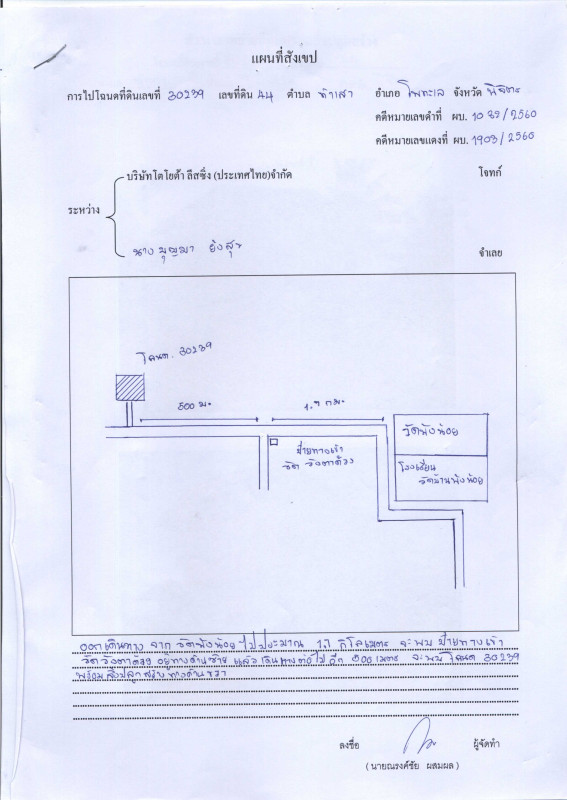 แผนที่สังเขป
การไปโฉนดที่ดินเลขที่ 30239 เลขที่ดิน 44 ตำบล ท่าเสา อำเภอ โพทะเล จังหวัด พิจิตร
คดีหมายเลขดำที่ ผบ. 1032/2560
คดีหมายเลขแดงที่ ผบ. 1903/2560
บริษัทโตโยต้า ลีสซิ่ง (ประเทศไทย)จำกัด โจทก์
ระหว่าง
นาง บุญมา ยังสุข จำเลย
โฉนด. 30239
500 ม. 1.7 กม.
ป้ายทางเข้า
วัด วังตาด้วง
วัดพังน้อย
โรงเรียน
วัดบ้านพังน้อย
ออกเดินทาง จาก วัดพังน้อย ไปประมาณ 1.7 กิโลเมตร จะพบ ป้ายทางเข้า
วัดวังตาด้วง อยู่ทางด้านซ้าย แล้วเดินทางต่อไปอีก 500 เมตร จะพบ โฉนด 30239
พร้อมสิ่งปลูกสร้าง ทางด้านขวา
ลงชื่อ ผู้จัดทำ
(นายณรงค์ชัย ผสมผล)